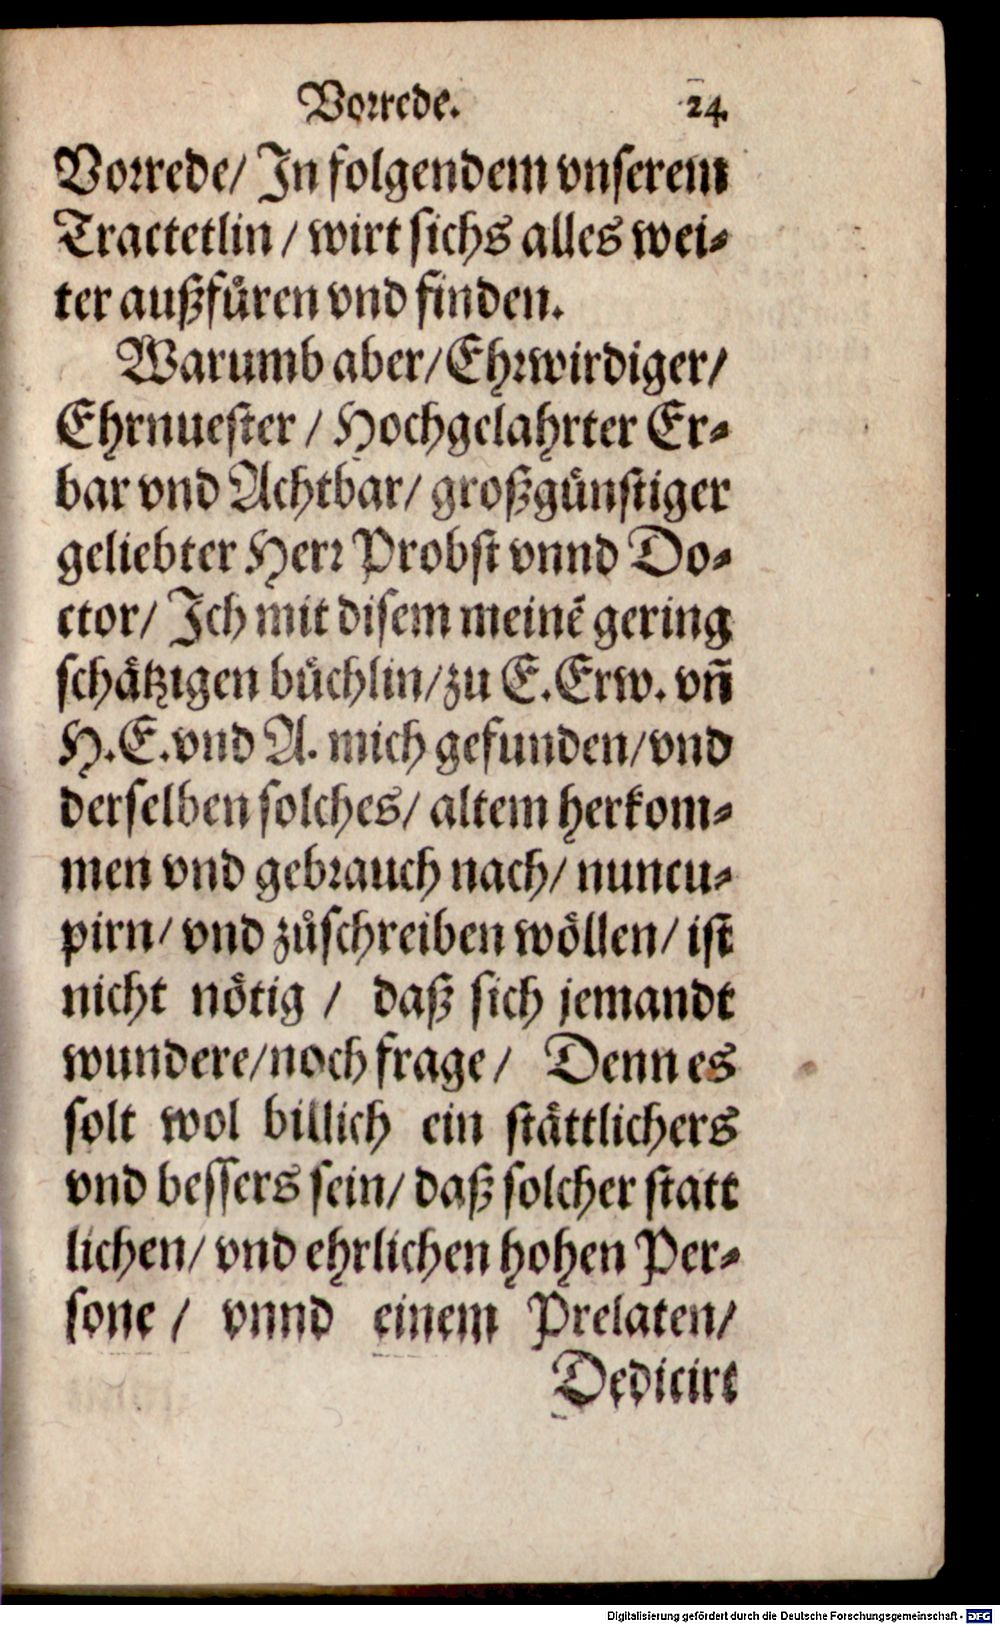 Vorrede. 24.
Vorrede/ In folgendem vnserem
Tractetlin / wirt sichs alles wei-
ter außfuͤren vnd finden.
Warumb aber/ Ehrwirdiger/
Ehrnuester / Hochgelahrter Er-
bar vnd Achtbar/ großguͤnstiger
geliebter Herr Probst vnnd Do-
ctor/ Ich mit disem meinẽ gering
schaͤtzigen buͤchlin/ zu E. Erw. vñ
H. E. vnd A. mich gefunden/ vnd
derselben solches/ altem herkom-
men vnd gebrauch nach/ nuncu-
pirn/ vnd zuͦschreiben woͤllen/ ist
nicht noͤtig / daß sich jemandt
wundere/ noch frage / Denn es
solt wol billich ein staͤttlichers
vnd bessers sein/ daß solcher statt
lichen/ vnd ehrlichen hohen Per-
sone / vnnd einem Prelaten/
Dedicirt
Digitalisierung gefördert durch die Deutsche Forschungsgemeinschaft - DFG